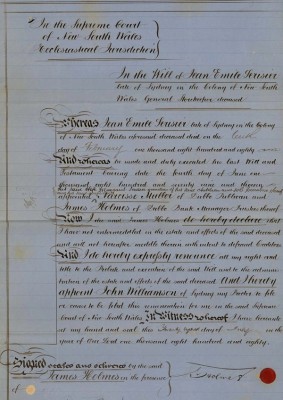 In the Supreme Court
of New South Wales
Ecclesiastical Jurisdiction
In the Will of Jean Emile Serisier
late of Sydney in the Colony of New South
Wales General Storekeeper deceased
Whereas Jean Emile Serisier late of Sydney in the Colony
of New South Wales deceased died on the
day of February one thousand eight hundred and eighty
And whereas he made and duly executed his last Will and
Testament bearing date the fourth day of June one
thousand eight hundred and seventy nine and thereof
appointed Narcisse Muller of Dubbo Publican and
James Holmes of Dubbo Bank Manager
Now I the said James Holmes do hereby declare
that I have not intermeddled in the estate and effects of the said deceased
and will not hereafter meddle therein with intent to defraud Creditors
And I do hereby expressly renounce all my right and
title to the Probate and execution of the said Will and to the adminis-
tration of the estate and effects of the said deceased And I hereby
appoint John Williamson of Sydney my Proctor to file
or cause to be filed this renunciation for me in the said Supreme
Court of New South Wales In Witness whereof I have hereunto
set my hand and seal this day of
in the year of Our Lord one thousand eight hundred and eighty.
Signed sealed and delivered by the said
James Holmes in the presence
of